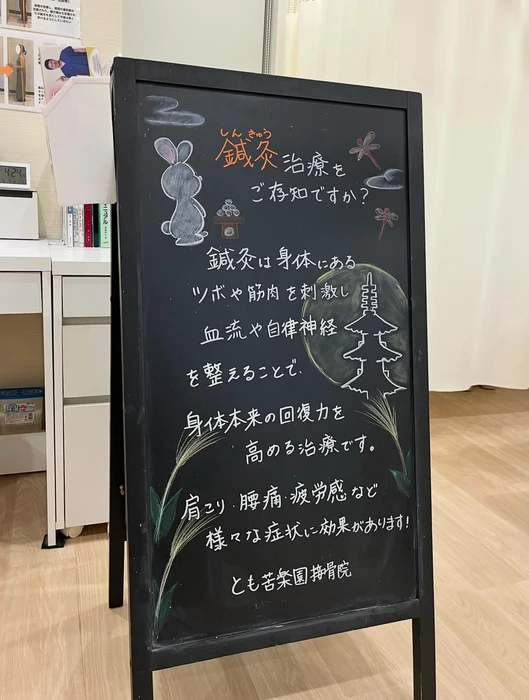 しんきゅう
鍼灸治療を
ご存知ですか?
鍼灸は身体にある
ツボや筋肉を刺激し
血流や自律神経
を整えることで、
身体本来の回復力を
高める治療です。
肩こり・腰痛・疲労感など
様々な症状に効果があります!
とも苦楽園接骨院
4:24